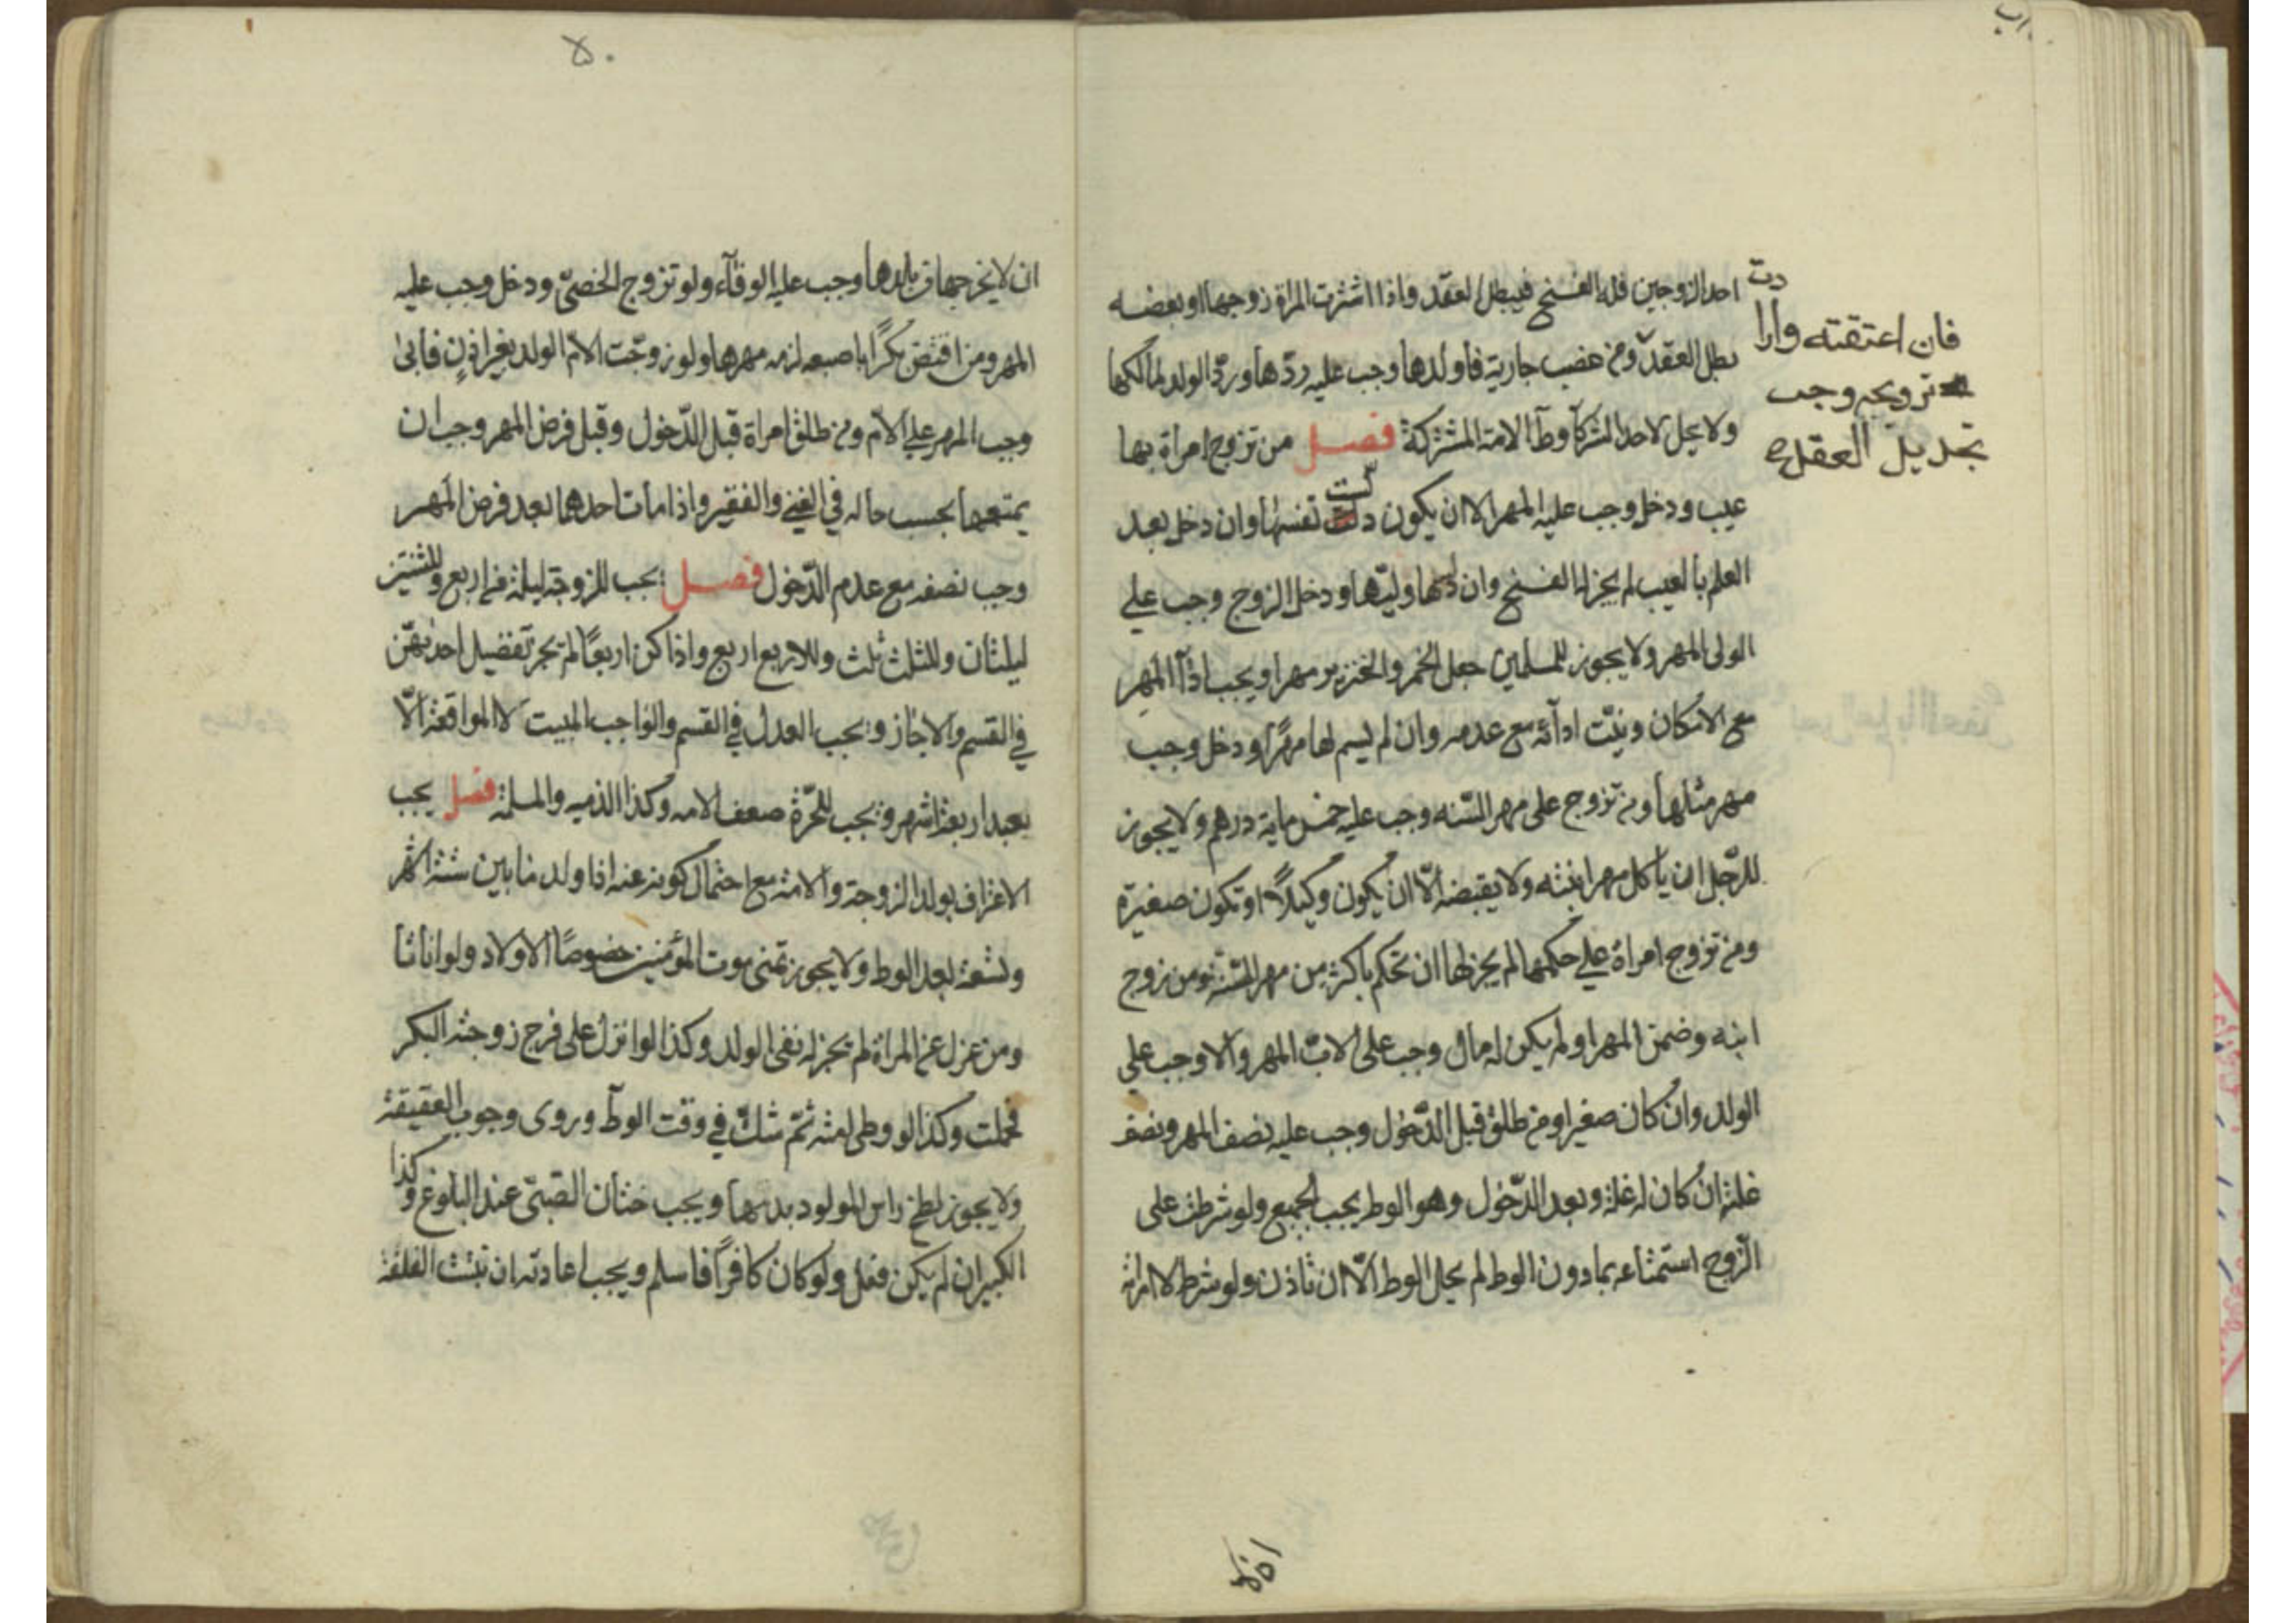 احد الزوجين فله الفسخ فيبطل العقد واذا اشترت المراة زوجها او بعضه
بطل العقد ومن غصب جارية فاولدها وجب عليه ردّها وردّ الولد لمالكها
ولا يحل لاحد الشركآ وطآ الامة المشتركة فصل من تزوج امراة بها
عيب ودخل وجب عليه المهر الا ان يكون دلست نفسها وان دخل بعد
العلم بالعيب لم يجز له الفسخ وان دلسها وليّها ودخل الزوج وجب على
الولى المهر ولا يجوز للمسلمين جعل الخمر والخنزير مهرا ويجب ادآ المهر
مع الامكان ونيّت ادائه مع عدمه وان لم يسم لها مهرًا ودخل وجب
مهر مثلها ومن تزوج على مهر السّنه وجب عليه خمس ماية درهم ولا يجوز
للرّجل ان ياكل مهر ابنته ولا يقبضه الّا ان يكون وكيلًا او تكون صغيرة
ومن تزوج امراة على حكمها لم يجز لها ان تحكم باكثر من مهر السّنة ومن زوج
ابنه وضمن المهر او لم يكن له مال وجب على الاب المهر والا وجب على
الولد وان كان صغيرا ومن طلق قبل الدّخول وجب عليه نصف المهر ونصف
غلته ان كان له غلة وبعد الدّخول وهو الوطر يجب الجميع ولو شرطت على
الزّوج استمتاعه بما دون الوطر لم يحل الوطر الّا ان تاذن ولو شرط لامراته
فان اعتقته وارادت
تزويجه وجب
تجديد العقد
٥٠
ان لا يخرجها من بلدها وجب عليه الوفآء ولو تزوج الخصىّ ودخل وجب عليه
المهر ومن افتض بكرًا باصبعه لزمه مهرها ولو زوجت الامّ الولد بغير اذنٍ فابى
وجب المهر على الامّ ومن طلق امراة قبل الدّخول وقبل فرض المهر وجب ان
يمتعها بحسب حاله في الغنى والفقير واذا مات احدهما بعد فرض المهر
وجب نصفه مع عدم الدّخول فصل يجب للزوجة ليلة من اربع وللثنتين
ليلتان وللثلث ثلث وللاربع اربع واذا كن اربعًا لم يجز تفضيل احديهنّ
في القسم والا جاز ويجب العدل في القسم والواجب المبيت لا المواقعة الّا
بعد اربعة اشهر ويجب للحرّة ضعف الامه وكذا الذميه والمسلمة فصل يجب
الاعتراف بولد الزوجة والامة مع احتمال كونه عنه اذا ولد ما بين ستة اشهر
وتسعة بعد الوطر ولا يجوز تمنى موت المؤمنين خصوصًا الاولاد ولو اناثا
ومن عزل عن المراة لم يجز له نفى الولد وكذا لو انزل على فرج زوجته البكر
فحملت وكذا لو وطى امته ثمّ شكّ في وقت الوطآ وروى وجوب العقيقة
ولا يجوز لطخ راس المولود بدمها ويجب ختان الصّبىّ عند البلوغ وكذا
الكبير ان لم يكن فعل ولو كان كافرًا فاسلم ويجب اعادته ان نبتت الغلفة